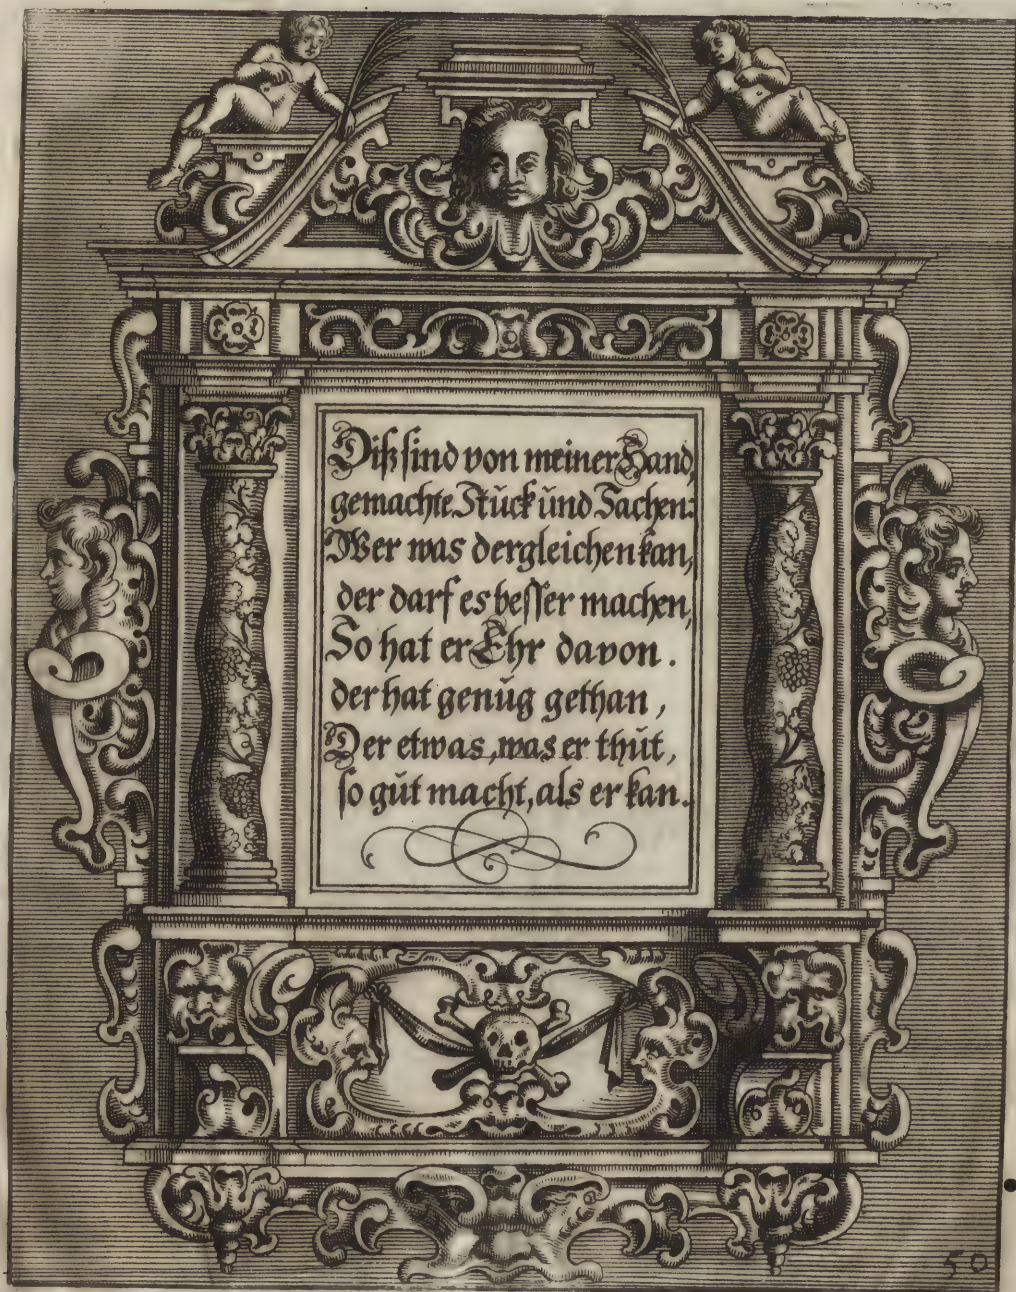 Diß sind von meiner Hand,
gemachte Stück ŭnd Sachen:
Wer was dergleichen kan,
der darf es besser machen,
So hat er Ehr davon.
der hat genŭg gethan,
Der etwas, was er thŭt,
so gŭt macht, als er kan.
50